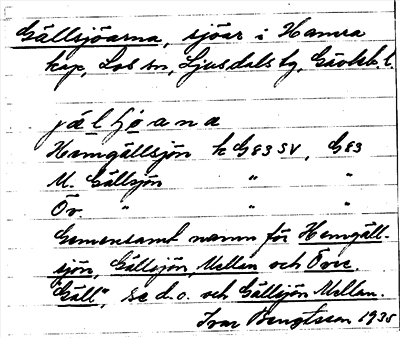 Gällsjöarna, sjöar i Hamra
kap, Los sn, Ljusdals tg, Gävleb. l.
jä̀lʃoana
Hemgällsjön k G 83 SV, G 83
M. Gällsjön " "
Öv. " " "
Gemensamt namn för Hemgäll-
sjön, Gällsjön, Mellan och Övre.
"Gäll", se d.o. och Gällsjön Mellan.
Ivar Bengtsson 1935